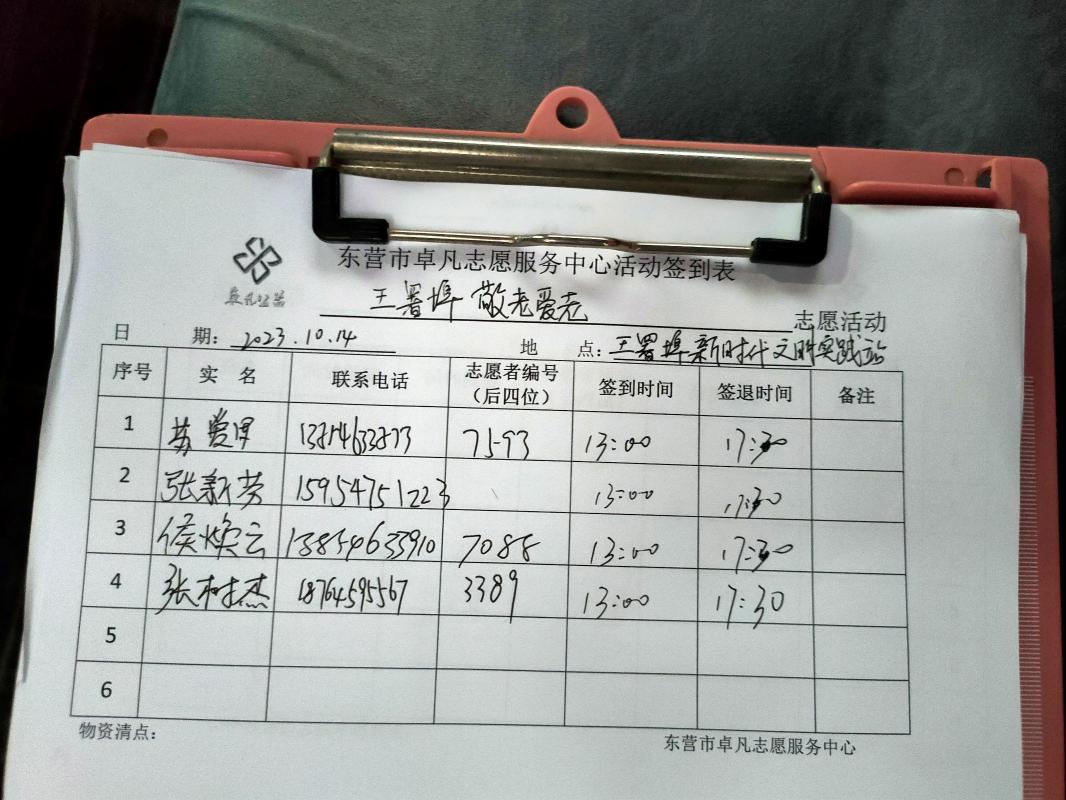 东营市卓凡志愿服务中心活动签到表
卓凡公益
王署埠 敬老爱老 志愿活动
日 期: 2023.10.14 地 点: 王署埠新时代文明实践站
序号 实 名 联系电话 志愿者编号（后四位） 签到时间 签退时间 备注
1 苏爱甲 7593 13:00 17:30
2 张新芳 15954751223 13:00 17:30
3 侯焕云 13854633910 7088 13:00 17:30
4 张树杰 18764595567 3389 13:00 17:30
5
6
物资清点: 东营市卓凡志愿服务中心